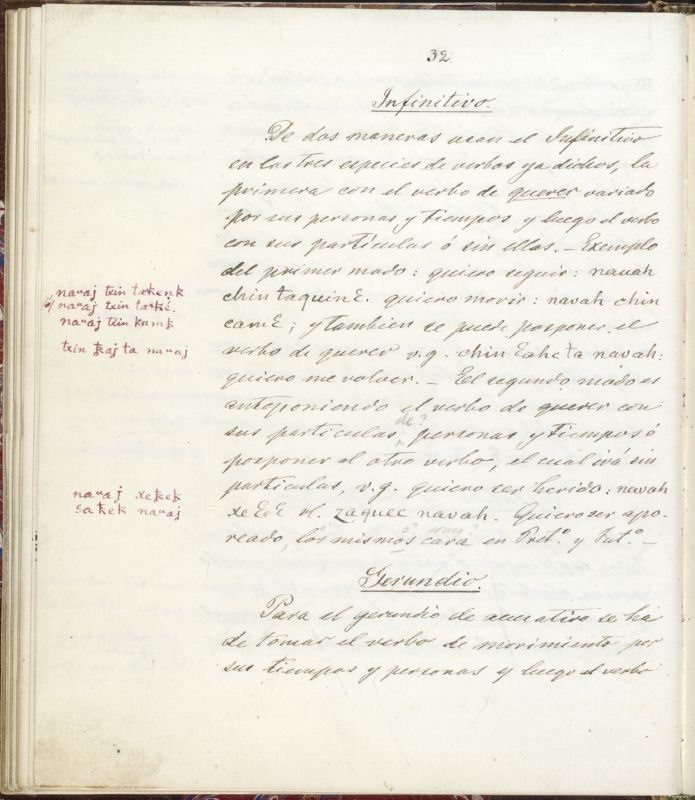 32
Infinitivo.
De dos maneras usan el Infinitivo
en las tres especies de verbos ya dichos, la
primera con el verbo de querer variado
por sus personas y tiempos y luego el verbo
con sus partículas ó sin ellas. – Exemplo
del primer modo: quiero seguir: navah
chin taquinƐ. quiero morir: navah chin
camƐ; y tambien se puede posponer el
verbo de querer v.g. chin Ɛahcta navah:
quiero me volver. – El segundo modo es
anteponiendo el verbo de querer con
de?
sus particulas, personas y tiempos ó
posponer al otro verbo, el cual irá sin
partículas, v.g. quiero ser herido: navah
xeƐeƐ vl. zaquec navah. Quiero ser apo-
reado, los mismos cara en Pret.º y Fut.º –
Gerundio.
Para el gerundio de acusativo se ha
de tomar el verbo de movimiento por
sus tiempos y personas y luego el verbo
naʷaj txin
naʷaj txin
naʷaj txin kamk
txin ta naʷaj
naʷaj xekek
naʷaj